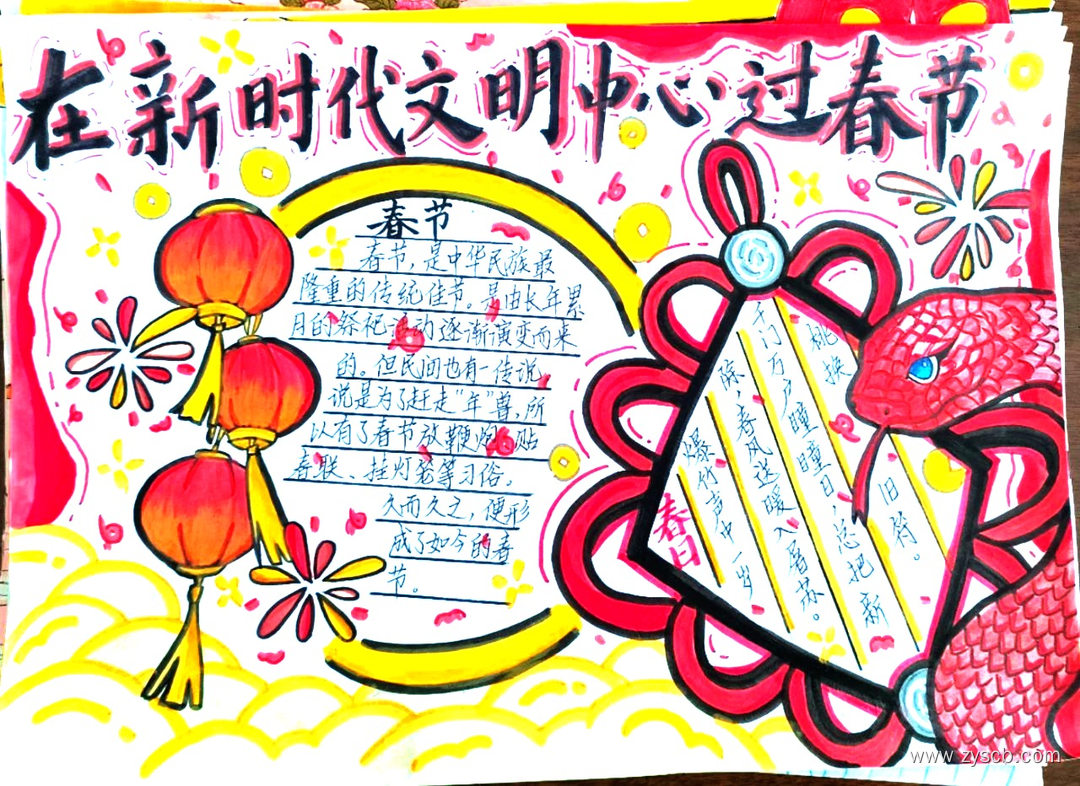 在新时代文明中心过春节
春节
春节，是中华民族最
隆重的传统佳节。是由长年累
月的祭祀活动逐渐演变而来
的。但民间也有一传说，
说是为了赶走“年”兽，所
以有了春节放鞭炮、贴
春联、挂灯笼等习俗。
久而久之，便形
成了如今的春
节。
春日
爆竹声中一岁
除，春风送暖入屠苏。
千门万户瞳瞳日，总把新
桃换旧符。
www.zyscb.com